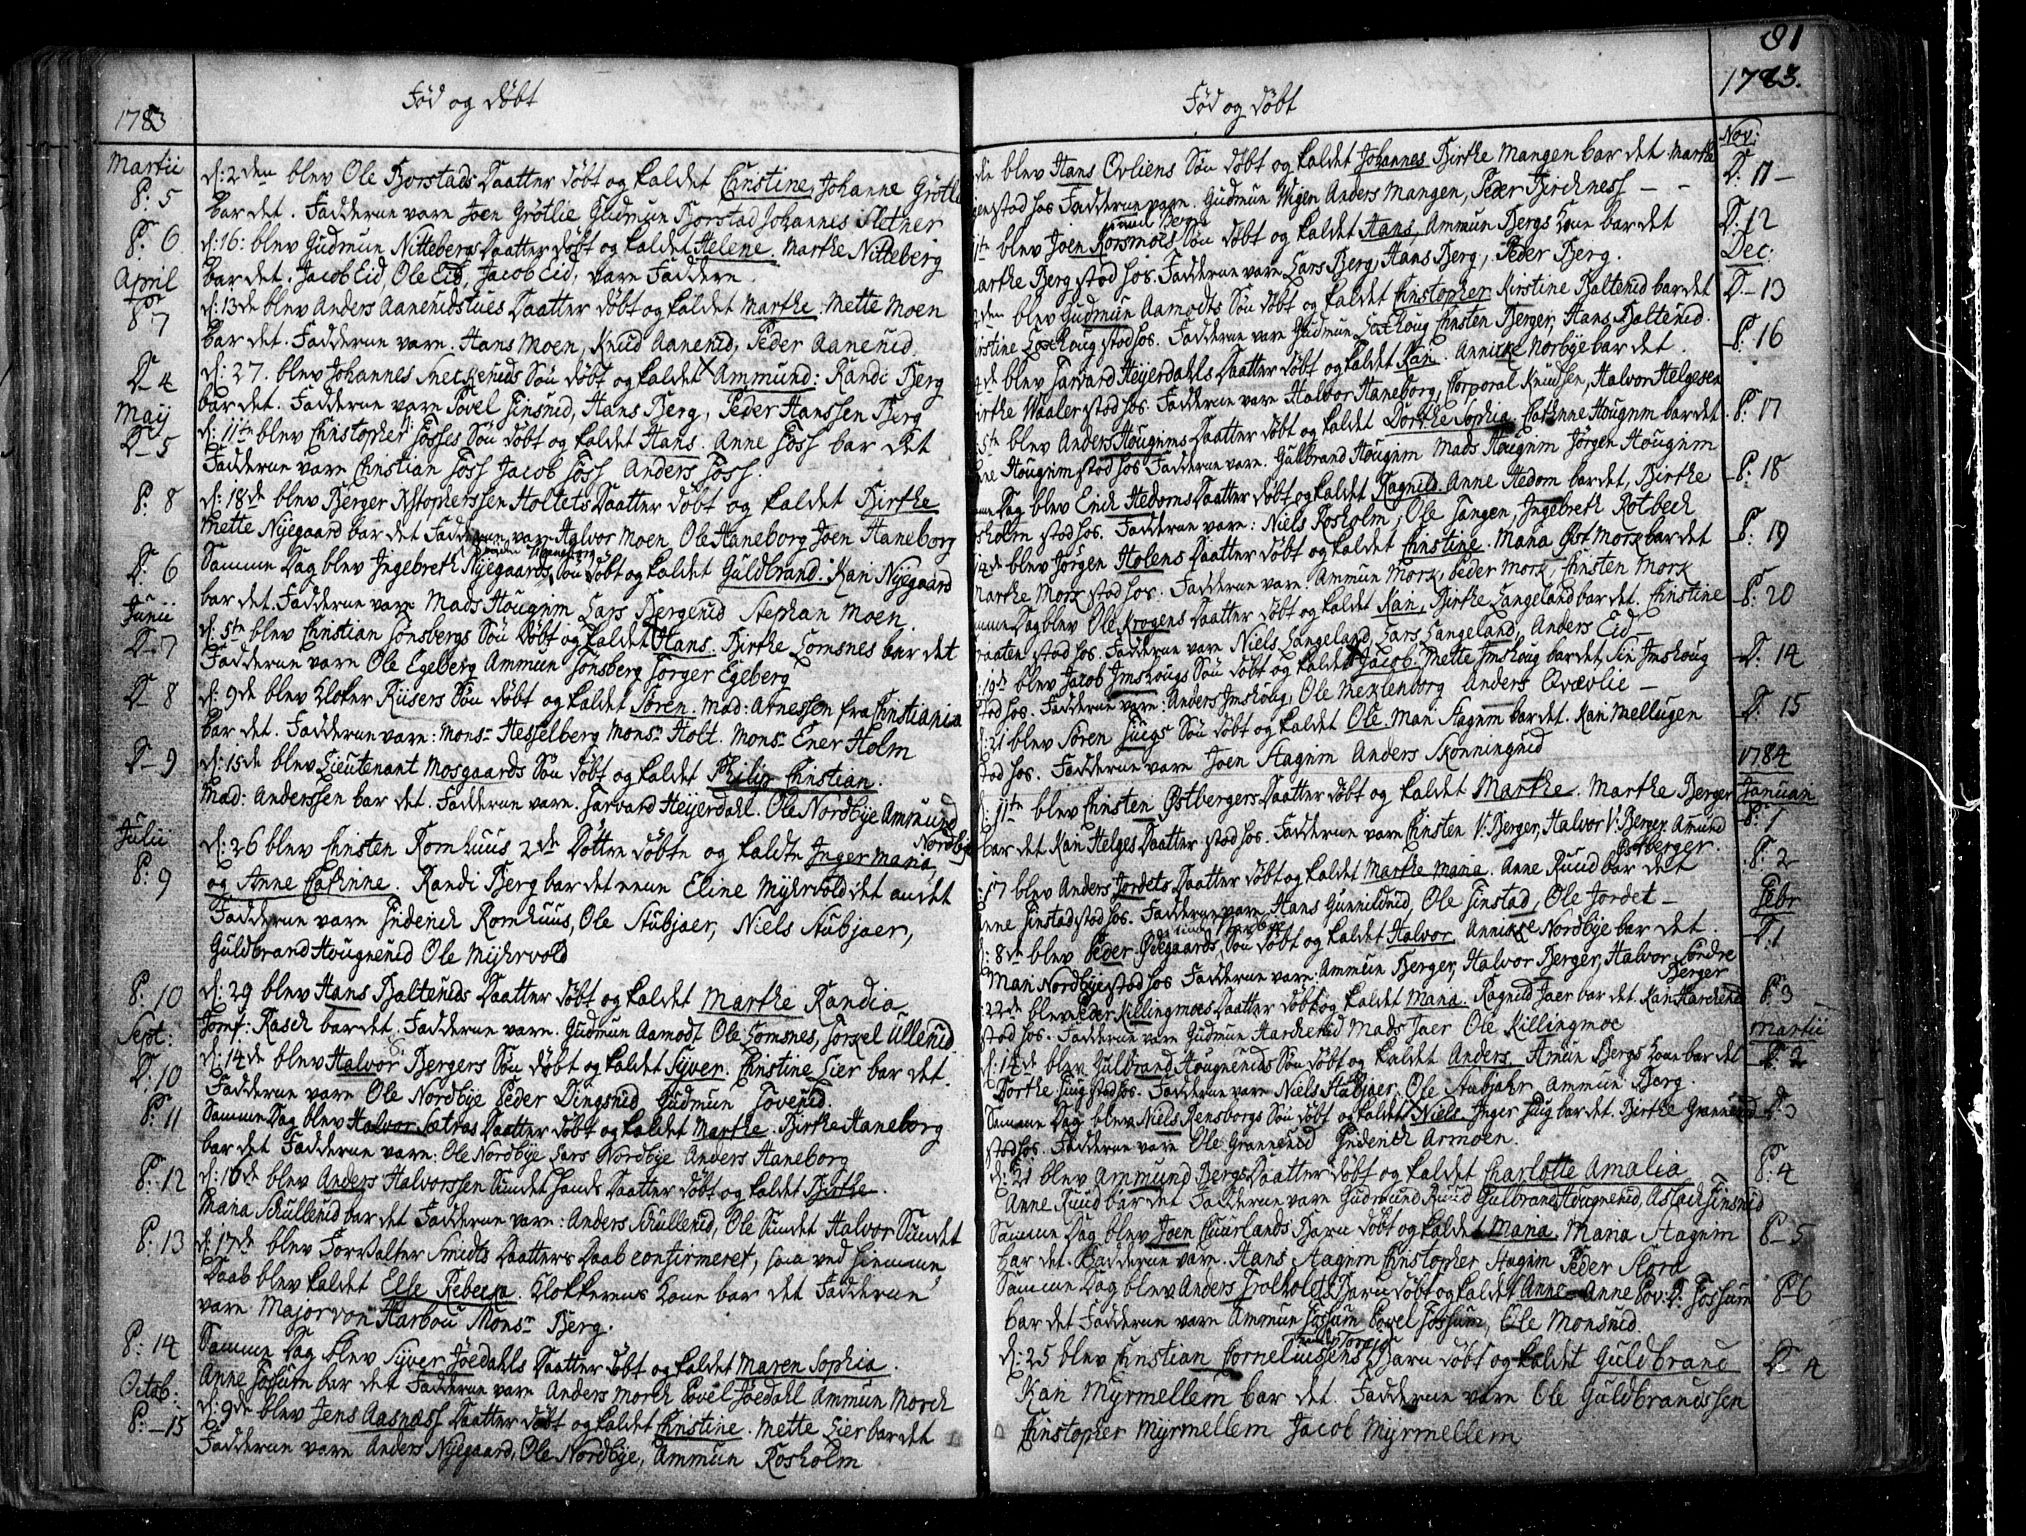 Fød og døbt
1783
Martii
d: 2den blev Ole Bjorstads Daatter døbt og kaldet Christine, Johanne Grøtlie
P: 5
bar det. Fadderne vare Joen Grøtlie Gudmun Bjorstad Johannes Sletner
P: 6
d: 16: blev Gudmun Nittebergs Daatter døbt og kaldet Helene. Marthe Nitteberg
April
bar det. Jacob Eid, Ole Eid, Jacob Eid, vare Faddere.
P: 7
d: 13de blev Anders Aanerudstues Daatter døbt og kaldet Marthe. Mette Moen
bar det. Fadderne vare. Hans Moen, Knud Aanerud, Peder Aanerud
D- 4
d: 27. blev Johannes Snekkeruds Søn døbt og kaldet Ammund: Randi Berg
Maij
bar det. Fadderne vare Povel Finsrud, Hans Berg, Peder Hanssen Berg
D- 5
d: 11te blev Christopher Fosses Søn døbt og kaldet Hans. Anne Foss bar det
Fadderne vare Christian Foss Jacob Foss Anders Foss.
P: 8
d: 18de blev Berger Xstophersen Holtets Daatter døbt og kaldet Birthe
Mette Nyegaard bar det Fadderne vare Halvor Moen Ole Haneborg Joen Haneborg
D: 6
Samme Dag blev Ingebreth Nyegaards Søn døbt og kaldet Guldbrand: Kari Nyegaard
bar det. Fadderne vare Mads Hougrim Lars Bergerud Stephan Moen.
Junii
D- 7
d: 5te blev Christian Tonsbergs Søn døbt og kaldet Hans. Birthe Lomsnes bar det
Fadderne vare Ole Egeberg Ammun Tonsberg Torger Egeberg
D- 8
d: 9de blev Kloker Riisers Søn døbt og kaldet Søren. Mad: Arnessen fra Christiania
bar det. Fadderne vare: Monsr Hesselberg Monsr Holt. Monsr Ener Holm
D- 9
d: 15de blev Lieutenant Mosgaards Søn døbt og kaldet Philip Christian.
Mad: Anderssen bar det. Fadderne vare. Tarvard Heyerdahl. Ole Nordbye Ammund
Nordbye
Julii
d: 26 blev Christen Romhuus 2de Døttre døbte og kaldte Inger Maria,
P: 9
og Anne Cathrine. Randi Berg bar det eene Eline Myhrvold det andet
Fadderne vare Friderich Romhuus, Ole Stubjaer, Niels Stubjaer,
Guldbrand Hougnerud Ole Myhrvold
P: 10
d: 29 blev Hans Balteruds Daatter døbt og kaldet Marthe Randia
Sept:
Jomf: Rasch bar det. Fadderne vare. Gudmun Aamodt Ole Lomsnes, Torkel Ullerud
D: 10
d: 14de blev Halvor Bergers Søn døbt og kaldet Syver. Christine Lier bar det.
Fadderne vare Ole Nordbye Peder Dingsrud Gudmun Toverud.
P: 11
Samme Dag blev Halvor Sætras Daatter døbt og kaldet Marthe. Birthe Haneborg
bar det Fadderne vare: Ole Nordbye Lars Nordbye Anders Haneborg
P: 12
d: 16de blev Anders Halvorssen Sundet hands Daatter døbt og kaldet Birthe.
Maria Schullerud bar det Fadderne vare: Anders Schullerud, Ole Sundet Halvor Sundet
P: 13
d: 17de blev Forvalter Smidts Daatters Daab confirmeret, som ved hiemme
Daab blev kaldet Else Rebecca. Klokkerens Kone bar det Fadderne
vare Major von Harbou Monsr Berg.
P: 14
Samme Dag blev Syver Joedahls Daatter døbt og kaldet Maren Sophia.
Anne Fossum bar det Fadderne vare Anders Morck Povel Joedahl Ammun Morck
Octob:
P:- 15
d: 9de blev Jens Aasnæss Daatter døbt og kaldet Christine. Mette Lier bar det
Fadderne vare Anders Nyegaard, Ole Nordbye, Ammun Rosholm
81
Fød og døbt
1783.
Nov:
de blev Hans Ovliens Søn døbt og kaldet Johannes Birthe Mangen bar det Marthe
D: 11-
stod hos Fadderne vare. Gudmun Wigen Anders Mangen, Peder Kirchness - -
D: 12
blev Joen Korsmoes Søn døbt og kaldet Hans, Ammun Bergs Kone bar det
Marthe Berg stod hos. Fadderne vare Lars Berg, Hans Berg, Peder Berg.
Dec:
D- 13
blev Gudmun Aamodts Søn døbt og kaldet Christopher Kirstine Balterud bar det
stod hos. Fadderne vare Gudmun Christen Berger, Hans Balterud.
P: 16
blev Tarvard Heyerdahls Daatter døbt og kaldet Kari. Annicke Norbye bar det.
Birthe Waaler stod hos. Fadderne vare Halvor Haneborg, Corporal Knudsen, Halvor Helgesen
P: 17
5te blev Anders Hougrims Daatter døbt og kaldet Dorthe Sophia Cathrine Hougrim bar det.
Hougrim stod hos Fadderne vare. Guldbrand Hougrim Mads Hougrim Jørgen Hougrim
P: 18
Dag blev Erich Hedoms Daatter døbt og kaldet Ragnild. Anne Hedom bar det, Birthe
Rosholm stod hos. Fadderne vare: Niels Rosholm, Ole Tangen, Ingebreth Rotbech
P: 19
blev Jørgen Holens Daatter døbt og kaldet Christine. Maria Øst Mork bar det
Marthe Mork stod hos. Fadderne vare. Ammun Mork, Peder Mork, Christen Mork
P: 20
Samme Dag blev Ole Krogens Daatter døbt og kaldet Kari, Birthe Langeland bar det. Christine
Braaten stod hos. Fadderne vare Niels Langeland, Lars Langeland, Anders Eid-
D: 14
d: 19de blev Jacob Jmshougs Søn døbt og kaldet Jacob. Mette Jmshoug bar det, Jmshoug
stod hos. Fadderne vare: Anders Jmshoug, Ole Meklenborg Anders Qvævlie -
D: 15
d: 21 blev Søren Juugs Søn døbt og kaldet Ole. Mari Hagrim bar det. Kari Mellugen
stod hos. Fadderne vare Joen Hagrim Anders Skønningrud
1784
Januari
P: 1
d: 11te blev Christen Østbergers Daatter døbt og kaldet Marthe. Marthe Berger
bar det Kari Helges Daatter stod hos. Fadderne vare Christen V: Berger, Halvor V: Berger Amund
Østberger.
P: 2
d: 17 blev Anders Jordets Daatter døbt og kaldet Marthe Maria. Anne Ruud bar det
Anne Finstad stod hos. Fadderne vare. Hans Gunnildrud, Ole Finstad, Ole Jordet -
Febr
D. 1
d: 8de blev Peder Ødegaards Søn døbt og kaldet Halvor. Annikke Nordbye bar det.
Mari Nordbye stod hos Fadderne vare: Ammun Berger, Halvor Berger, Halvor Søndre
Berger
P: 3
d: 22de blev Peder Killingmoes Daatter døbt og kaldet Maria. Ragnild Jaer bar det. Kari Harcherud
stod hos. Fadderne vare Gudmun Harcherud Mads Jaer Ole Killingmoe
Martii
D: 2
d: 14de blev Gulbrand Hougneruds Søn døbt og kaldet Anders. Amun Bergs Kone bar det
Dorthe Juug stod hos. Fadderne vare Niels Stubjaer. Ole Stubjahr Ammun Berg.
D: 3
Samme Dag blev Niels Rensborgs Søn døbt og kaldet Niels Inger Juug bar det. Birthe Grannerud
stod hos. Fadderne vare Ole Grannerud Friderich Armoen.
P: 4
d: 21 blev Ammund Bergs Daatter døbt og kaldet Charlotte Amalia
Anne Ruud bar det Fadderne vare Gudmund Ruud Gulbrand Hougnerud, Aslach Finsrud
P- 5
Samme Dag blev Joen Cuurlands Barn døbt og kaldet Maria. Maria Hagrim
bar det. Fadderne vare. Hans Hagrim Christopher Hagrim Peder Flora
P- 6
Samme Dag blev Anders Trolholts Barn døbt og kaldet Anne - Anne Pov: D. Fossum
bar det Fadderne vare Ammun Fossum Povel Fossum, Ole Monsrud.
D- 4
d: 25 blev Christian Corneliusens Barn døbt og kaldet Guldbrand
Kari Myrmellem bar det. Fadderne vare Ole Guldbrandssen
Christopher Myrmellem Jacob Myrmellem